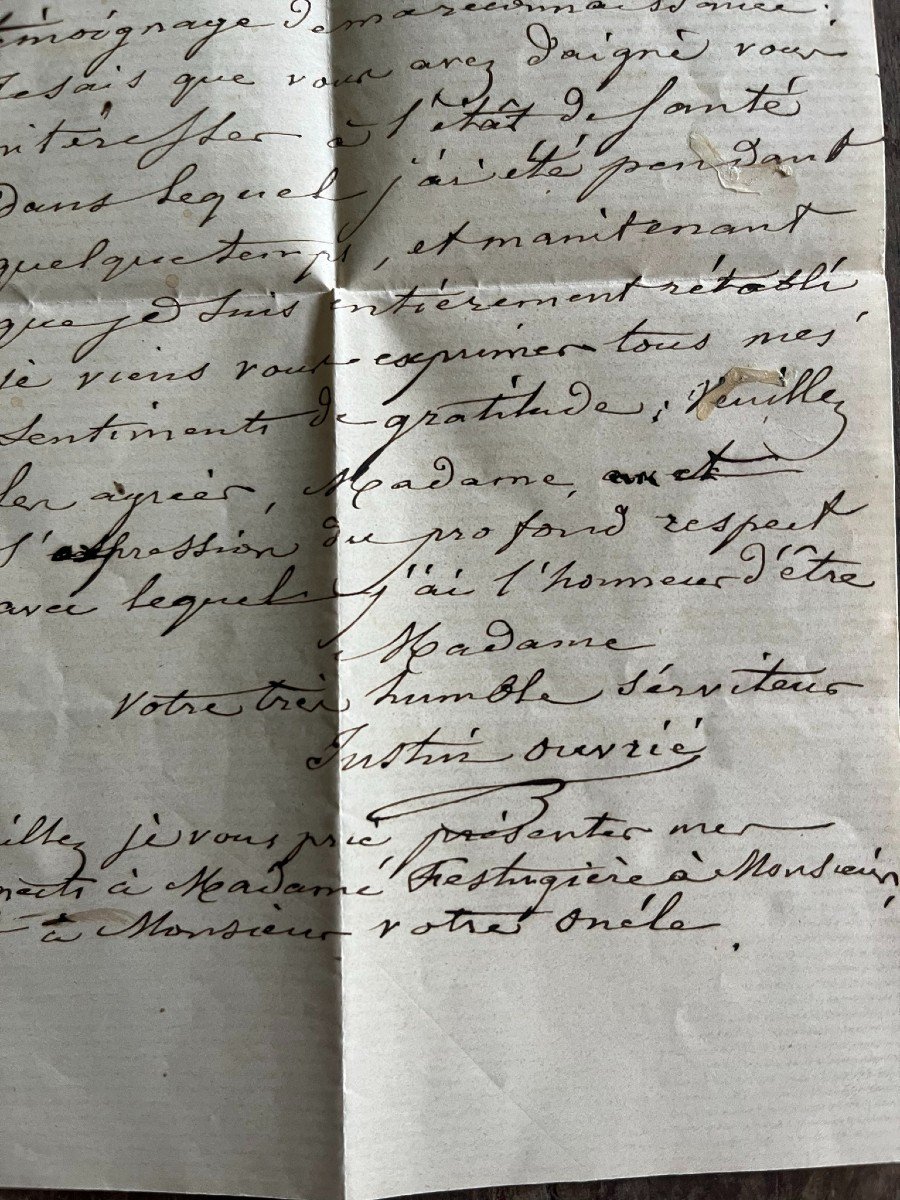 témoignage de ma reconnaissance.
Je sais que vous avez daigné vous
intéresser à l'êtât de santé
dans lequel j'ai été pendant
quelque temps, et maintenant
que je suis entiérement rétabli
je viens vous exprimer tous mes
sentiments de gratitude; Veuillez
les agréer, Madame, et
l'expression du profond respect
avec lequel j'ai l'honneur d'être
Madame
votre très humble sérviteur
Justin ouvrié
illez je vous prie présenter mes
pects à Madame Festugière à Monsieur,
à Monsieur votre oncle.